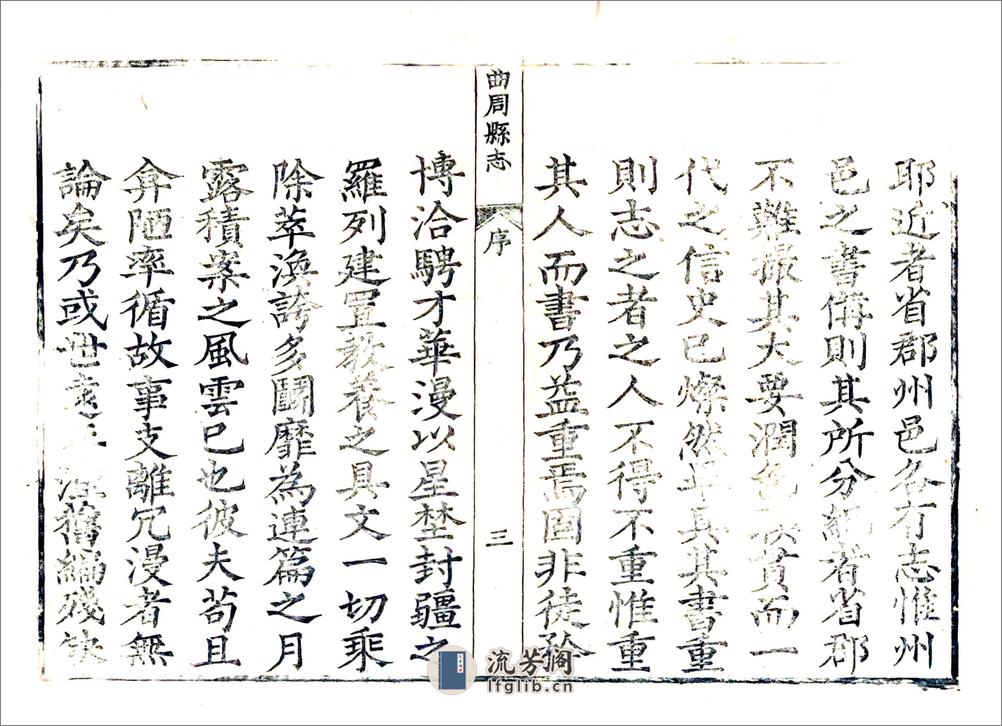 耶近者省郡州邑各有志惟州
邑之書備則其所分紀者省郡
不難撮其大要潤色貫而一
代之信史已燦然乎具其書重
則志之者之人不得不重惟重
其人而書乃益重焉固非徒矜
曲周縣志
序
三
博洽騁才華漫以星埜封疆之
羅列建置教養之具文一切乘
除萃渙誇多鬬靡為連篇之月
露積案之風雲已也彼夫苟且
弇陋率循故事支離冗漫者無
論矣乃或世舊編殘缺
流芳阁
lfglib.cn